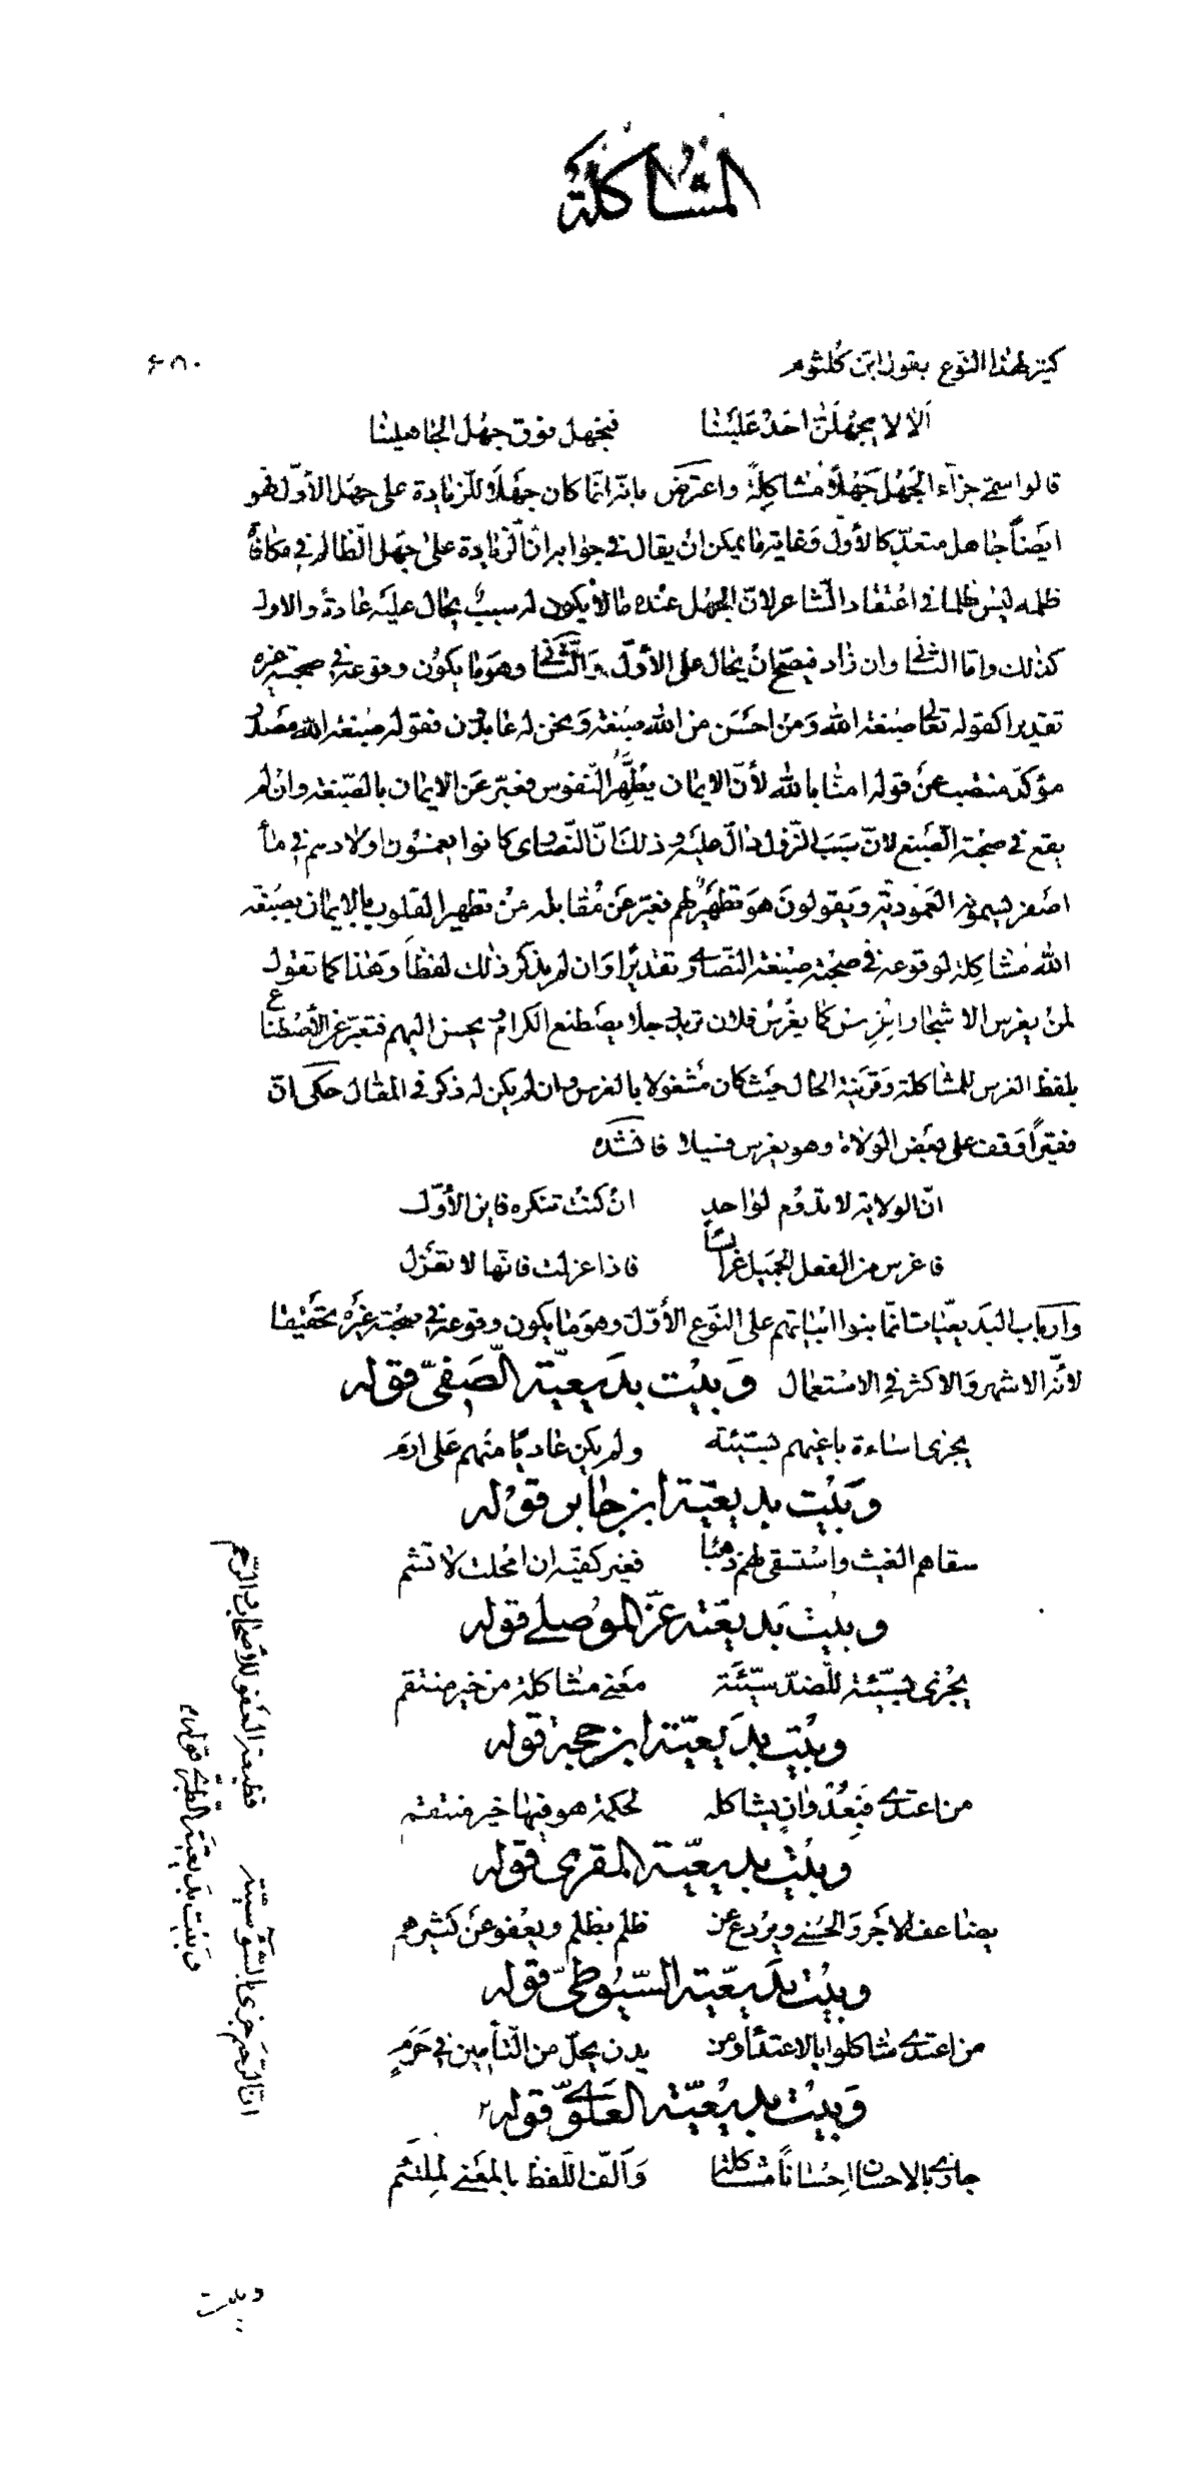 المشاكلة
كثير لهذا النوع بقول ابن كلثوم
٦٨٠
ألا لا يجهلن احد علينا فنجهل فوق جهل الجاهلينا
قالوا سمى جزآء الجهل جهلاً مشاكلةً واعترض بانه انما كان جهلا للزيادة على جهل الأول فهو
ايضاً جاهل متعد كالأول وغاية ما يمكن ان يقال فى جوابه ان الزيادة على جهل الظالم فى مكافأة
ظلمه ليس ظلما فى اعتقاد الشاعر لان الجهل عنده ما لا يكون له سبب يحال عليه عادة والاول
كذلك واما الثانى وان زاد فيصح ان يحال على الأول والثانى وهو ما يكون وقوعه فى صحبة غيره
تقديرا كقوله تعالى صبغة الله ومن احسن من الله صبغة ونحن له عابدون فقوله صبغة الله مصدر
مؤكد منتصب عن قوله امنا بالله لأن الايمان يطهر النفوس فعبر عن الايمان بالصبغة وان لم
يقع فى صحبة الصبغ لان سبب النزول دال عليه وذلك ان النصارى كانوا يغمسون اولادهم فى مآء
اصفر يسمونه المعمودية ويقولون هو تطهير لهم فعبر عن مقابله من تطهير القلوب بالايمان بصبغة
الله مشاكلة لوقوعه فى صحبة صبغة النصارى تقديرا وان لم يذكر ذلك لفظا وهذا كما تقول
لمن يغرس الاشجار اغرس كما يغرس فلان تريد رجلا يصطنع الكرام ويحسن اليهم فتعبر عن الأصطناع
بلفظ الغرس للمشاكلة وقرينة الحال حيث كان مشغولا بالغرس وان لم يكن له ذكر فى المقال حكى ان
فقيراً وقف على بعض الولاة وهو يغرس فسيلا فانشده
ان الولاية لا تدوم لواحد ان كنت تنكره فاين الأول
فاغرس من الفعل الجميل غرائسا فاذا عزلت فانها لا تعزل
وارباب البديعيات انما بنوا ابياتهم على النوع الأول وهو ما يكون وقوعه فى صحبة غيره تحقيقا
لأنه الاشهر والاكثر فى الاستعمال وبيت بديعية الصفى قوله
يجزى اساءة باغيهم بسيئة ولم يكن عاديا منهم على ارم
وبيت بديعية ابن جابر قوله
سقاهم الغيث واستسقى لهم ذهبا فغير كفيه ان امحلت لا تشم
وبيت بديعية عز الموصلى قوله
يجزى بسيئة للضد سيئة معنى مشاكلة من خير منتقم
وبيت بديعية ابن حجة قوله
من اعتدى فبعدوان يشاكله لحكمة هو فيها خير منتقم
وبيت بديعية المقرى قوله
يضاعف الاجر والحسنى ويردع عن ظلم بظلم ويعفو عن كثيرهم
وبيت بديعية السيوطى قوله
من اعتدى شاكلوا بالاعتداء ومن يدن يحل من التأمين فى حرم
وبيت بديعية العلوى قوله
جازى بالاحسان احسانا مشاكلتا وآلف اللفظ بالمعنى لملتئم
وبيت بديعية الطبرى قوله
ان الرحم جزى بالسوء سيئة قطيعة العفو للأصحاب والرحم